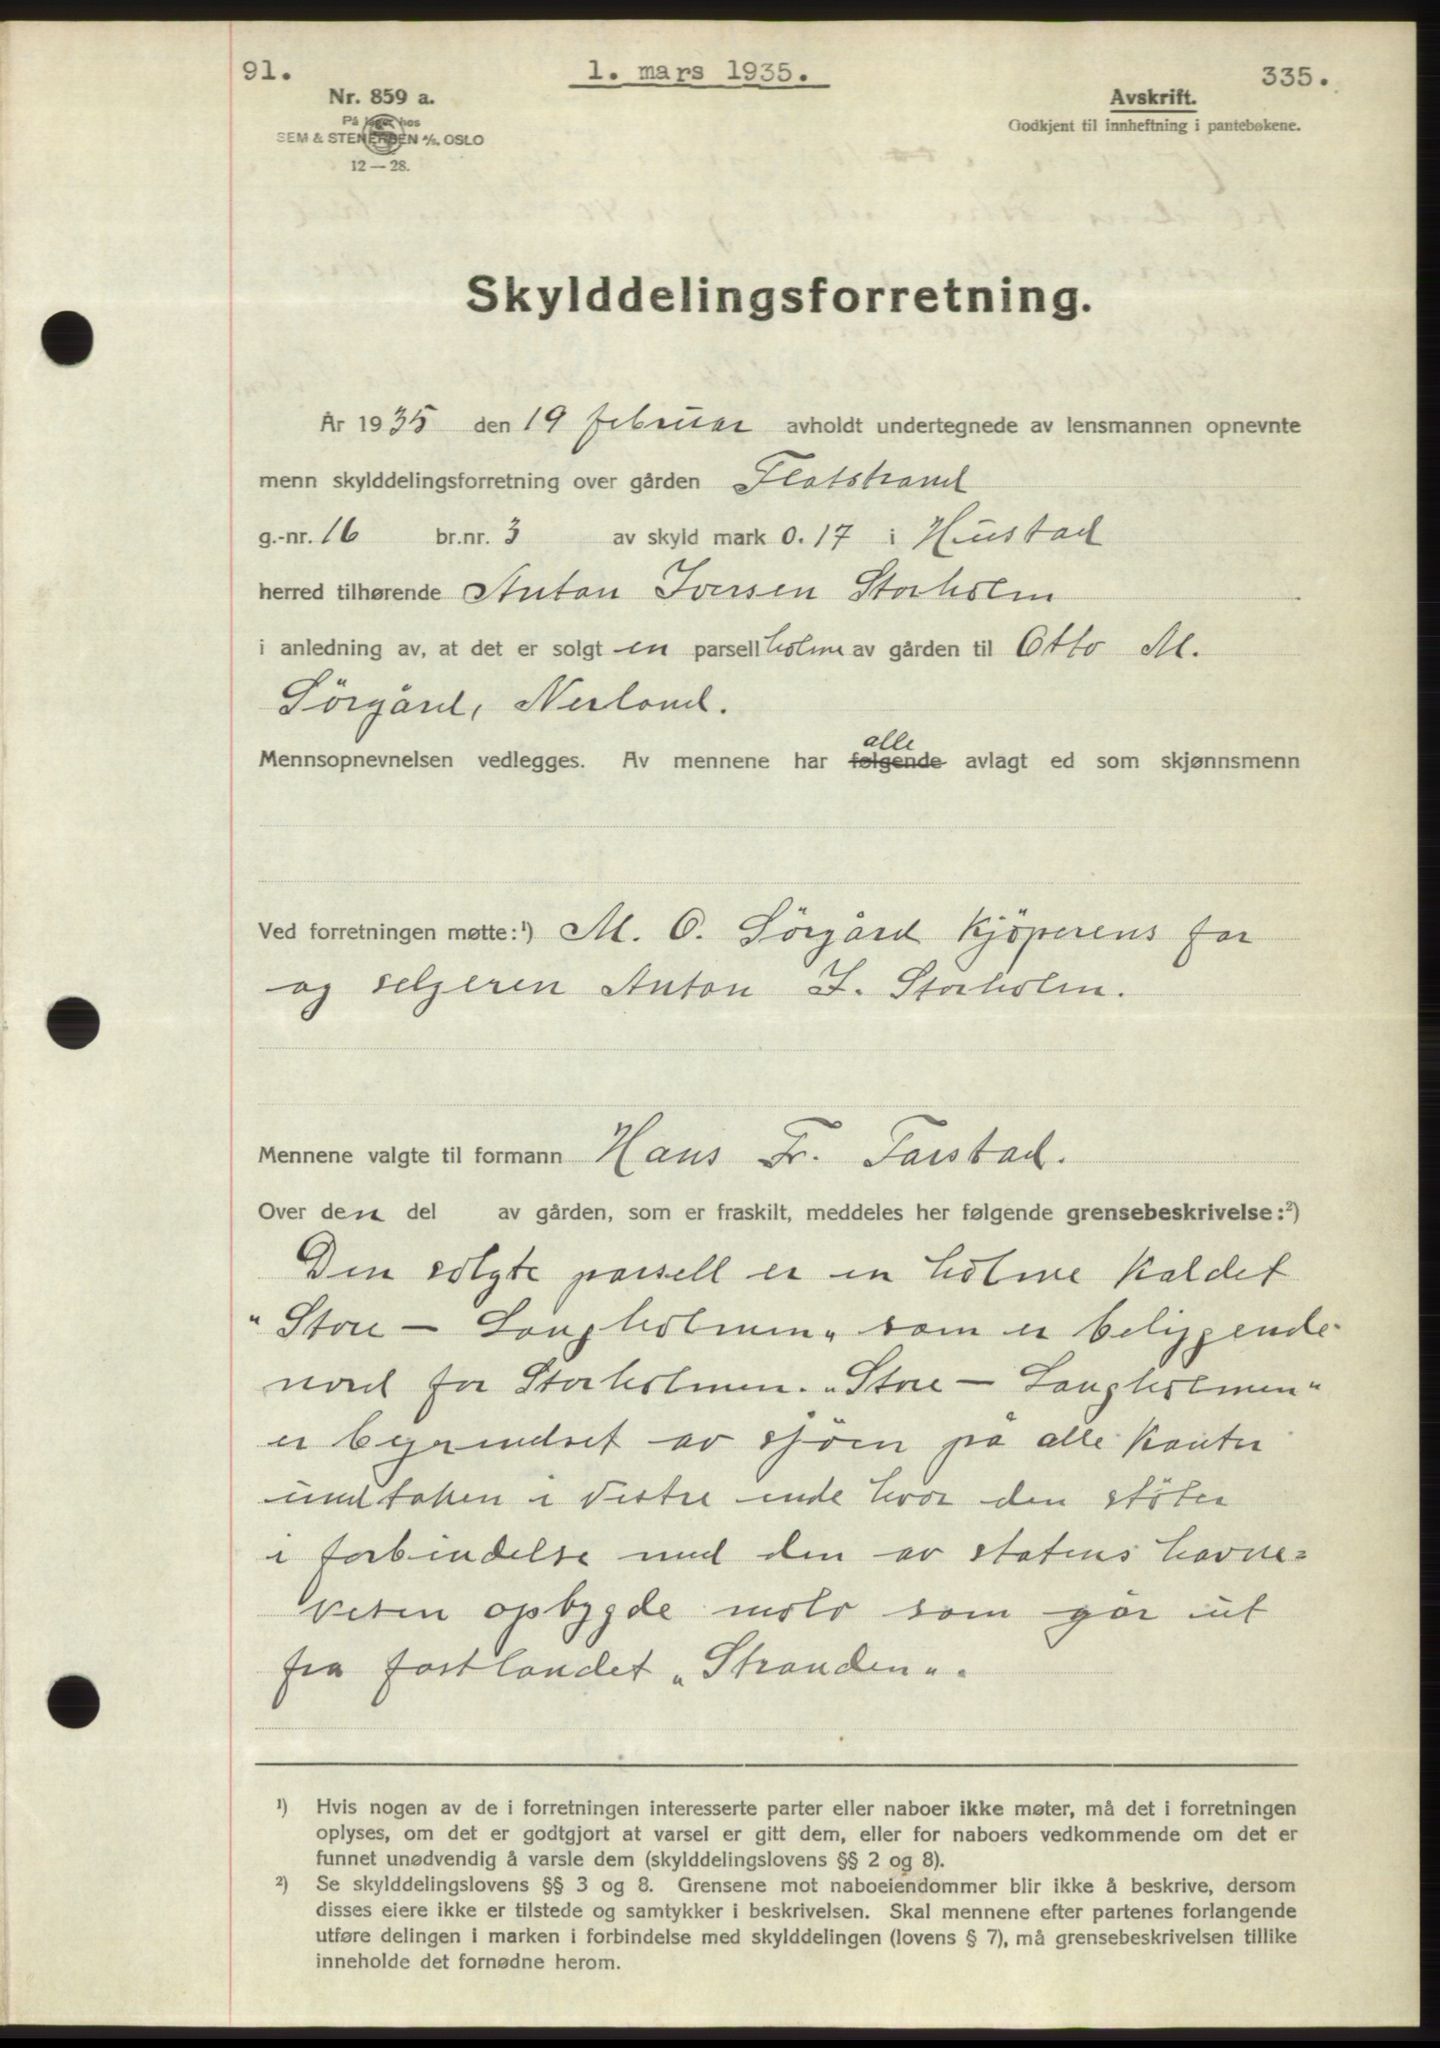 91.
1. mars 1935.
335.
Nr. 859 a.
På lager hos
SEM & STENERSEN A/S, OSLO
12 — 28.
Avskrift.
Godkjent til innheftning i pantebøkene.
Skylddelingsforretning.
År 1935 den 19 februar avholdt undertegnede av lensmannen opnevnte
menn skylddelingsforretning over gården Flatstrand
g.-nr. 16 br.nr. 3 av skyld mark 0.17 i Hustad
herred tilhørende Anton Iversen Storholm
i anledning av, at det er solgt en parsell holme av gården til Otto M.
Sörgård, Nerland.
alle
Mennsopnevnelsen vedlegges. Av mennene har følgende avlagt ed som skjønnsmenn
Ved forretningen møtte:¹) M. O. Sörgård kjöperens far
og selgeren Anton I. Storholm.
Mennene valgte til formann Hans Fr. Farstad.
Over den del av gården, som er fraskilt, meddeles her følgende grensebeskrivelse:²)
Den solgte parsell er en holme kaldet
"Store - Langholmen" som er beliggende
nord for Storholmen. "Store - Langholmen"
er begrendset av sjöen på alle kanter
undtaken i vestre ende hvor den stöter
i forbindelse med den av statens havne=
vesen opbygde molo som går ut
fra fastlandet "Stranden".
¹) Hvis nogen av de i forretningen interesserte parter eller naboer ikke møter, må det i forretningen
oplyses, om det er godtgjort at varsel er gitt dem, eller for naboers vedkommende om det er
funnet unødvendig å varsle dem (skylddelingslovens §§ 2 og 8).
²) Se skylddelingslovens §§ 3 og 8. Grensene mot naboeiendommer blir ikke å beskrive, dersom
disses eiere ikke er tilstede og samtykker i beskrivelsen. Skal mennene efter partenes forlangende
utføre delingen i marken i forbindelse med skylddelingen (lovens § 7), må grensebeskrivelsen tillike
inneholde det fornødne herom.